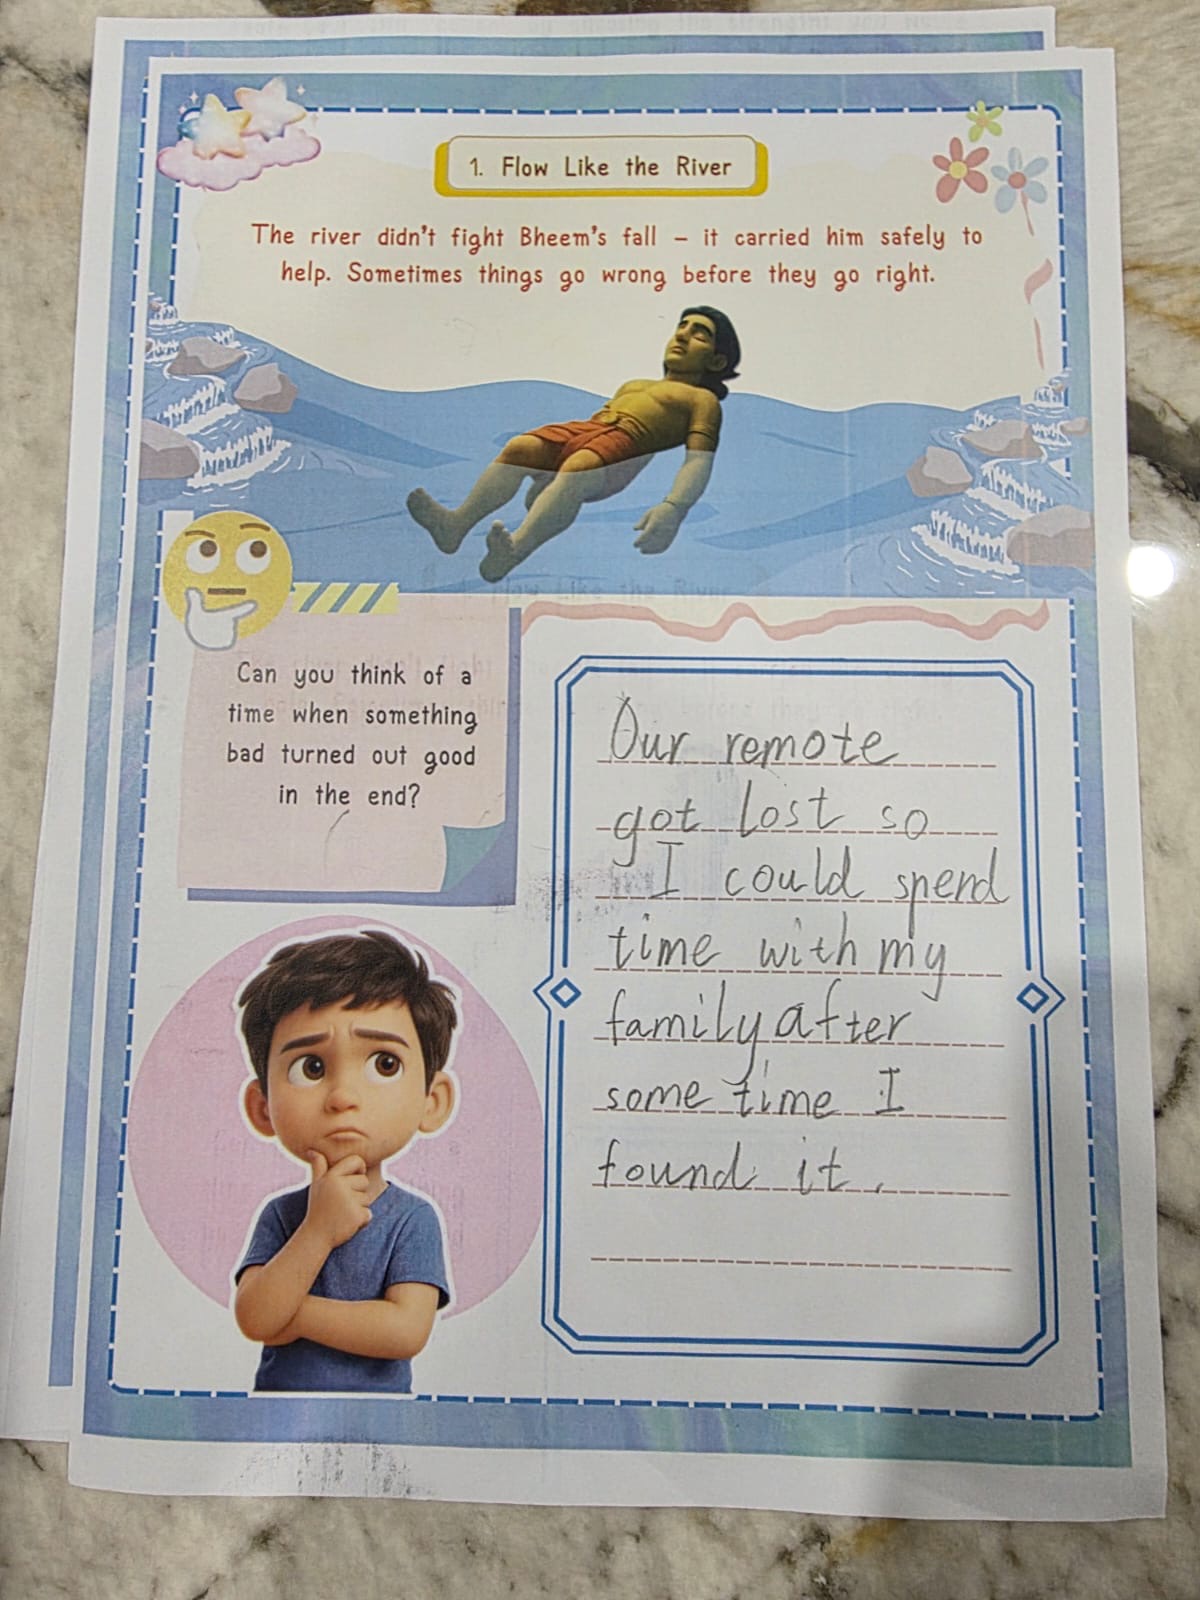 1. Flow Like the River
The river didn't fight Bheem's fall – it carried him safely to
help. Sometimes things go wrong before they go right.
Can you think of a
time when something
bad turned out good
in the end?
Our remote
got lost so
I could spend
time with my
family after
some time I
found it.